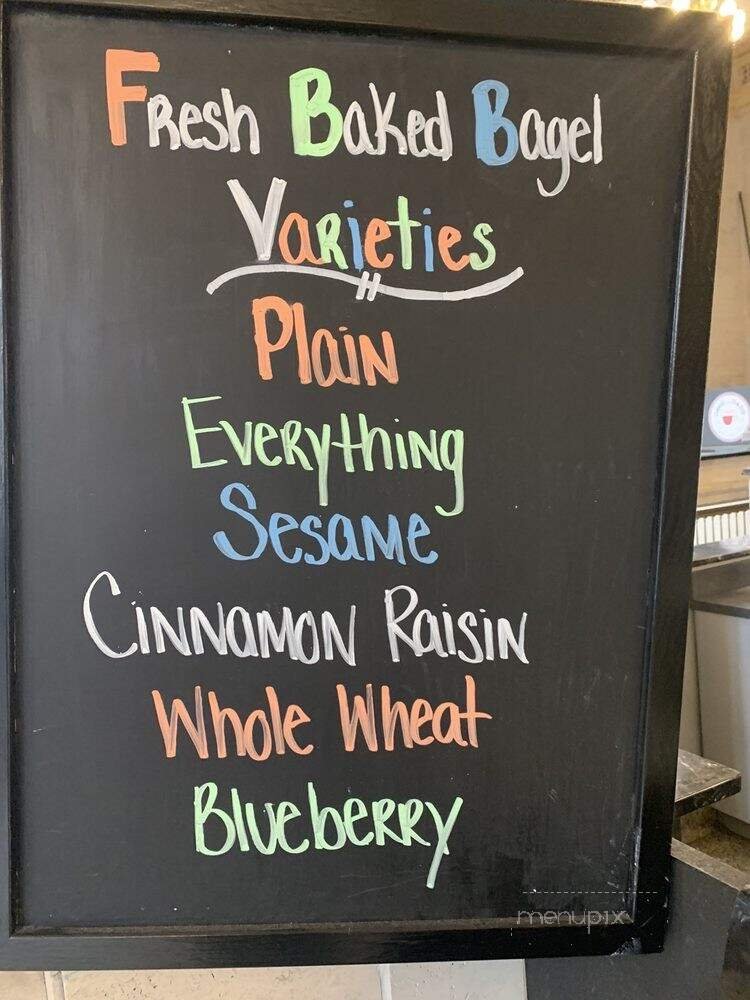 Fresh Baked Bagel
Varieties
Plain
Everything
Sesame
Cinnamon Raisin
Whole Wheat
Blueberry
menupix